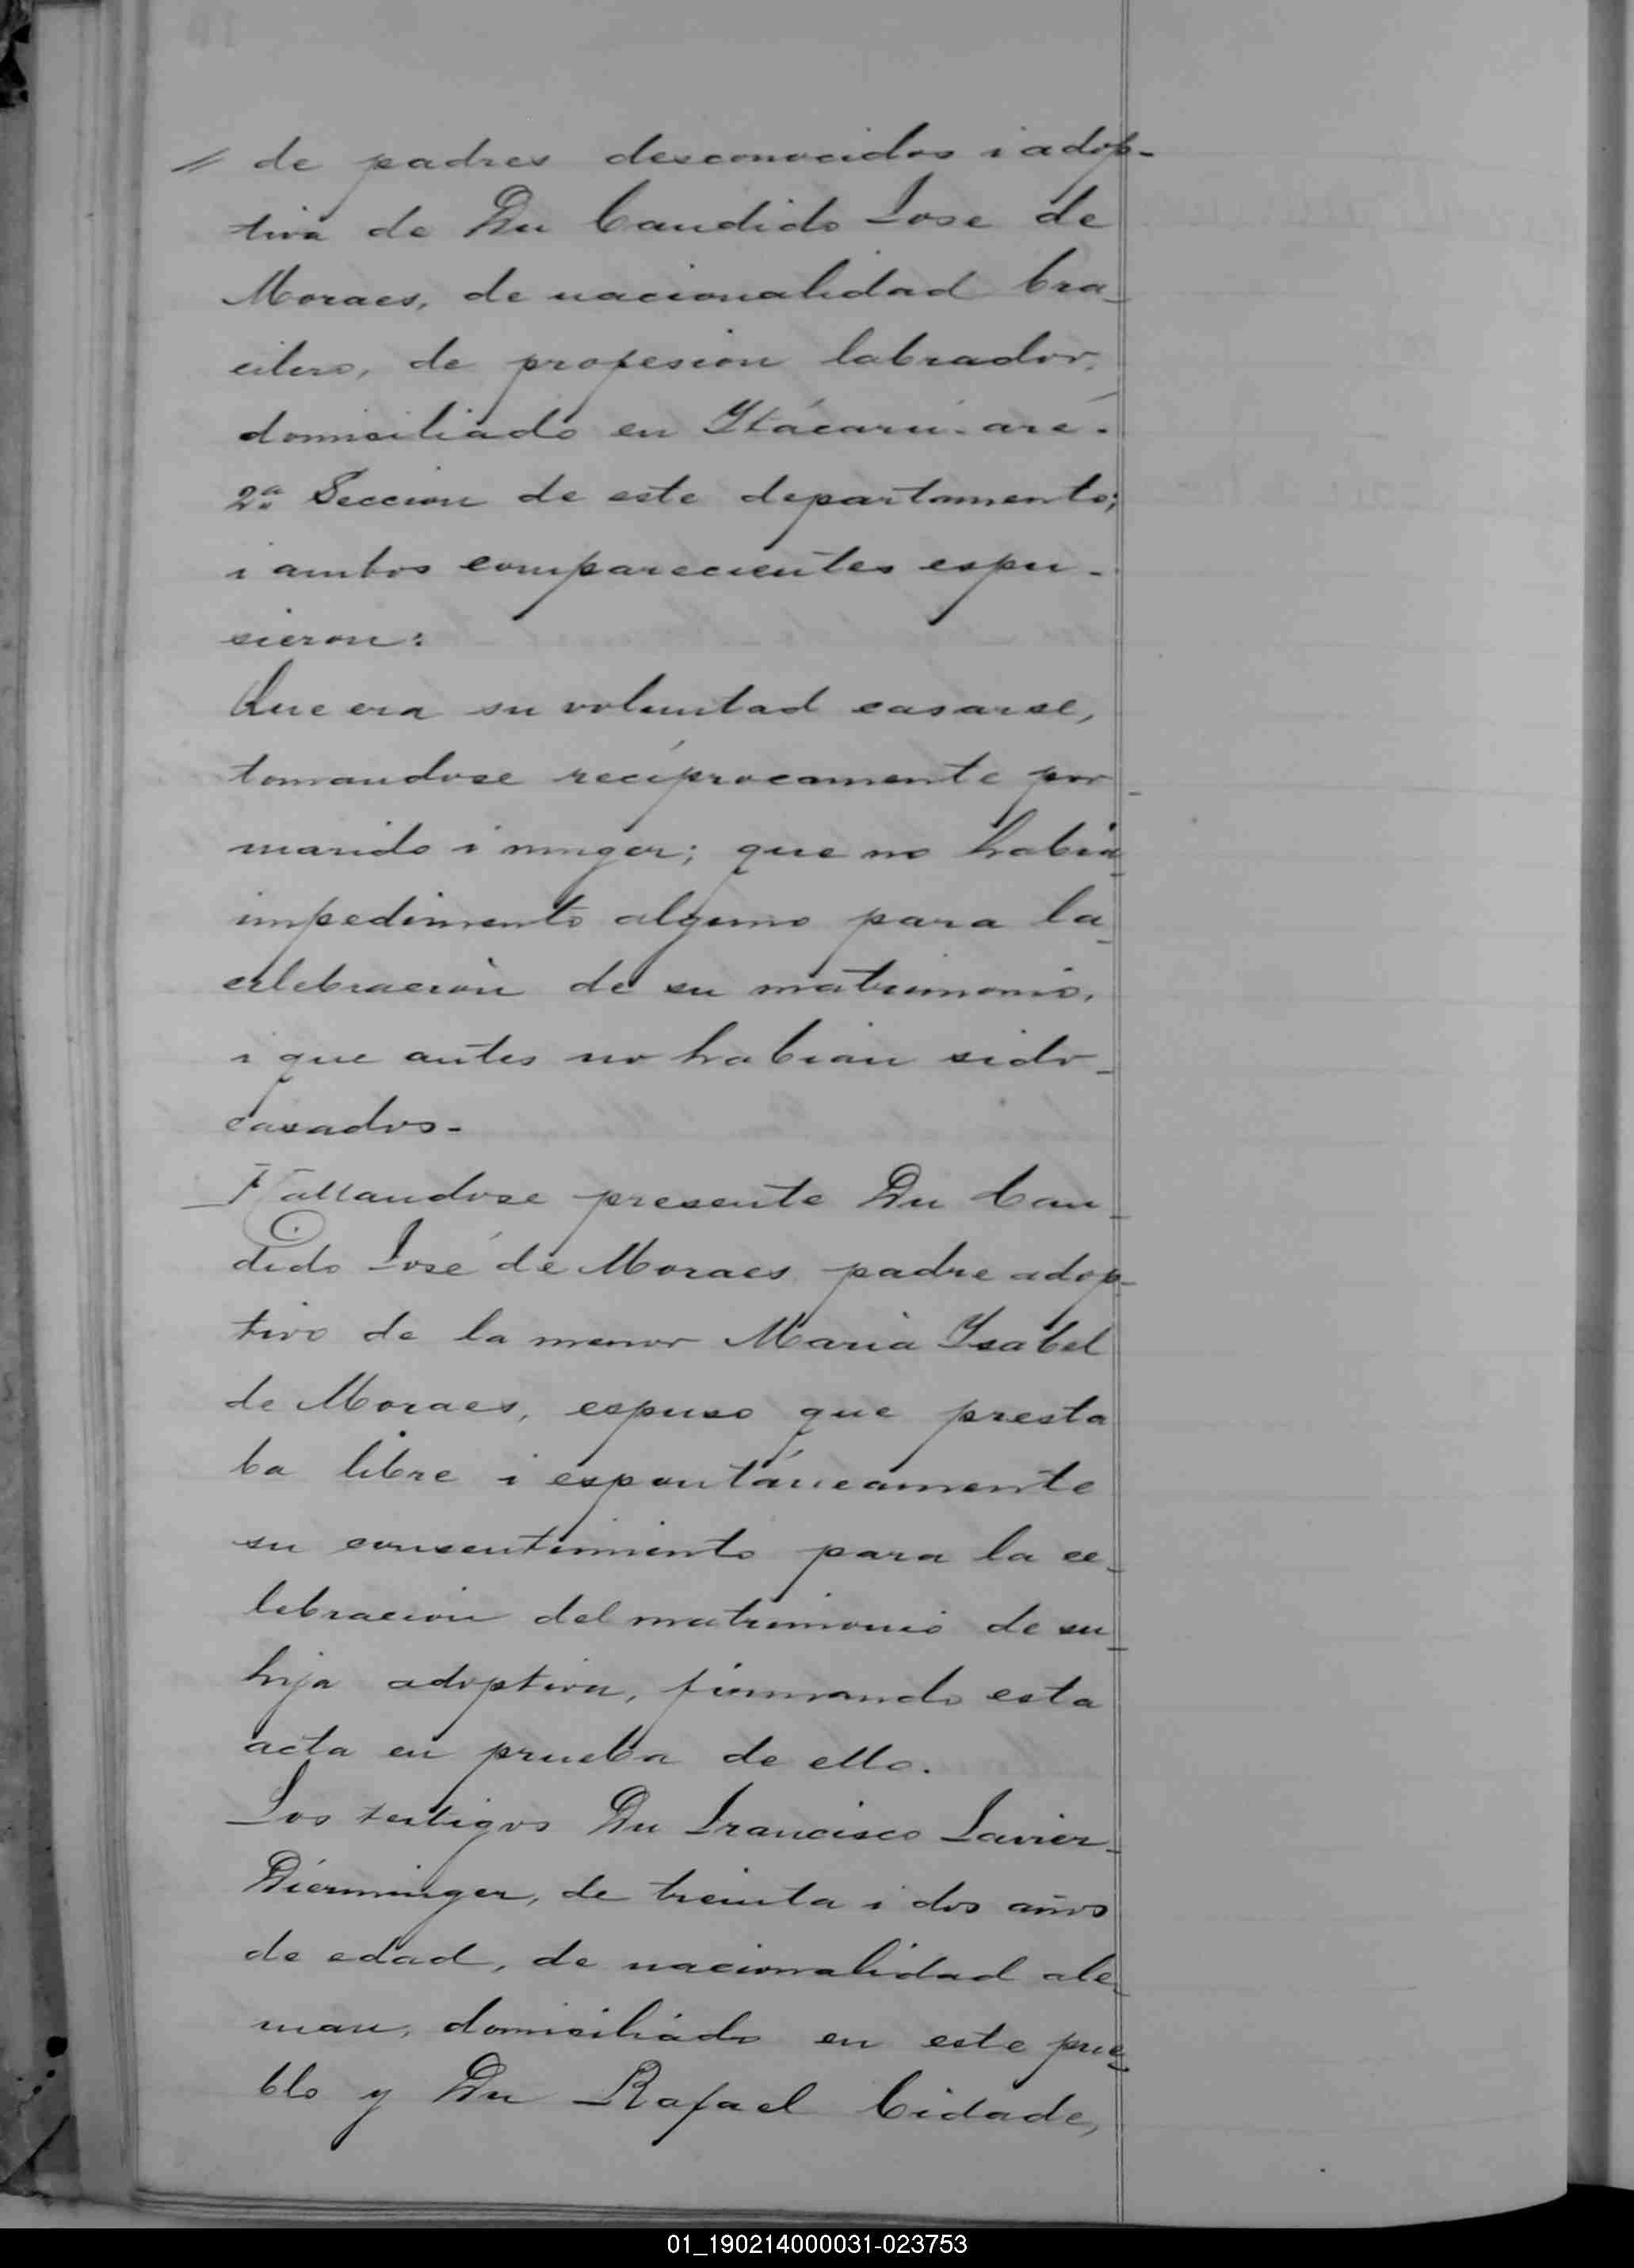 // de padres desconocidos i adop-
tiva de Dn Candido Jose de
Moraes, de nacionalidad bra-
cilero, de profesion labrador,
domiciliado en Itácarú-aré.
2ª Seccion de este departamento;
i ambos comparecientes espu-
sieron:
Que era su voluntad casarse,
tomandose recíprocamente por
marido i muger; que no habia
impedimento alguno para la
celebracion de su matrimonio,
i que antes no habian sido
casados-
Hallandose presente Dn Can-
dido José de Moraes padre adop-
tivo de la menor Maria Ysabel
de Moraes, espuso que presta
ba libre i espontáneamente
su consentimiento para la ce-
lebracion del matrimonio de su
hija adoptiva, firmando esta
acta en prueba de ello.
Los testigos Dn Francisco Javier
Dierminger, de treinta i dos años
de edad, de nacionalidad ale-
man, domiciliado en este pue-
blo y Dn Rafael Cidade,
01_190214000031-023753